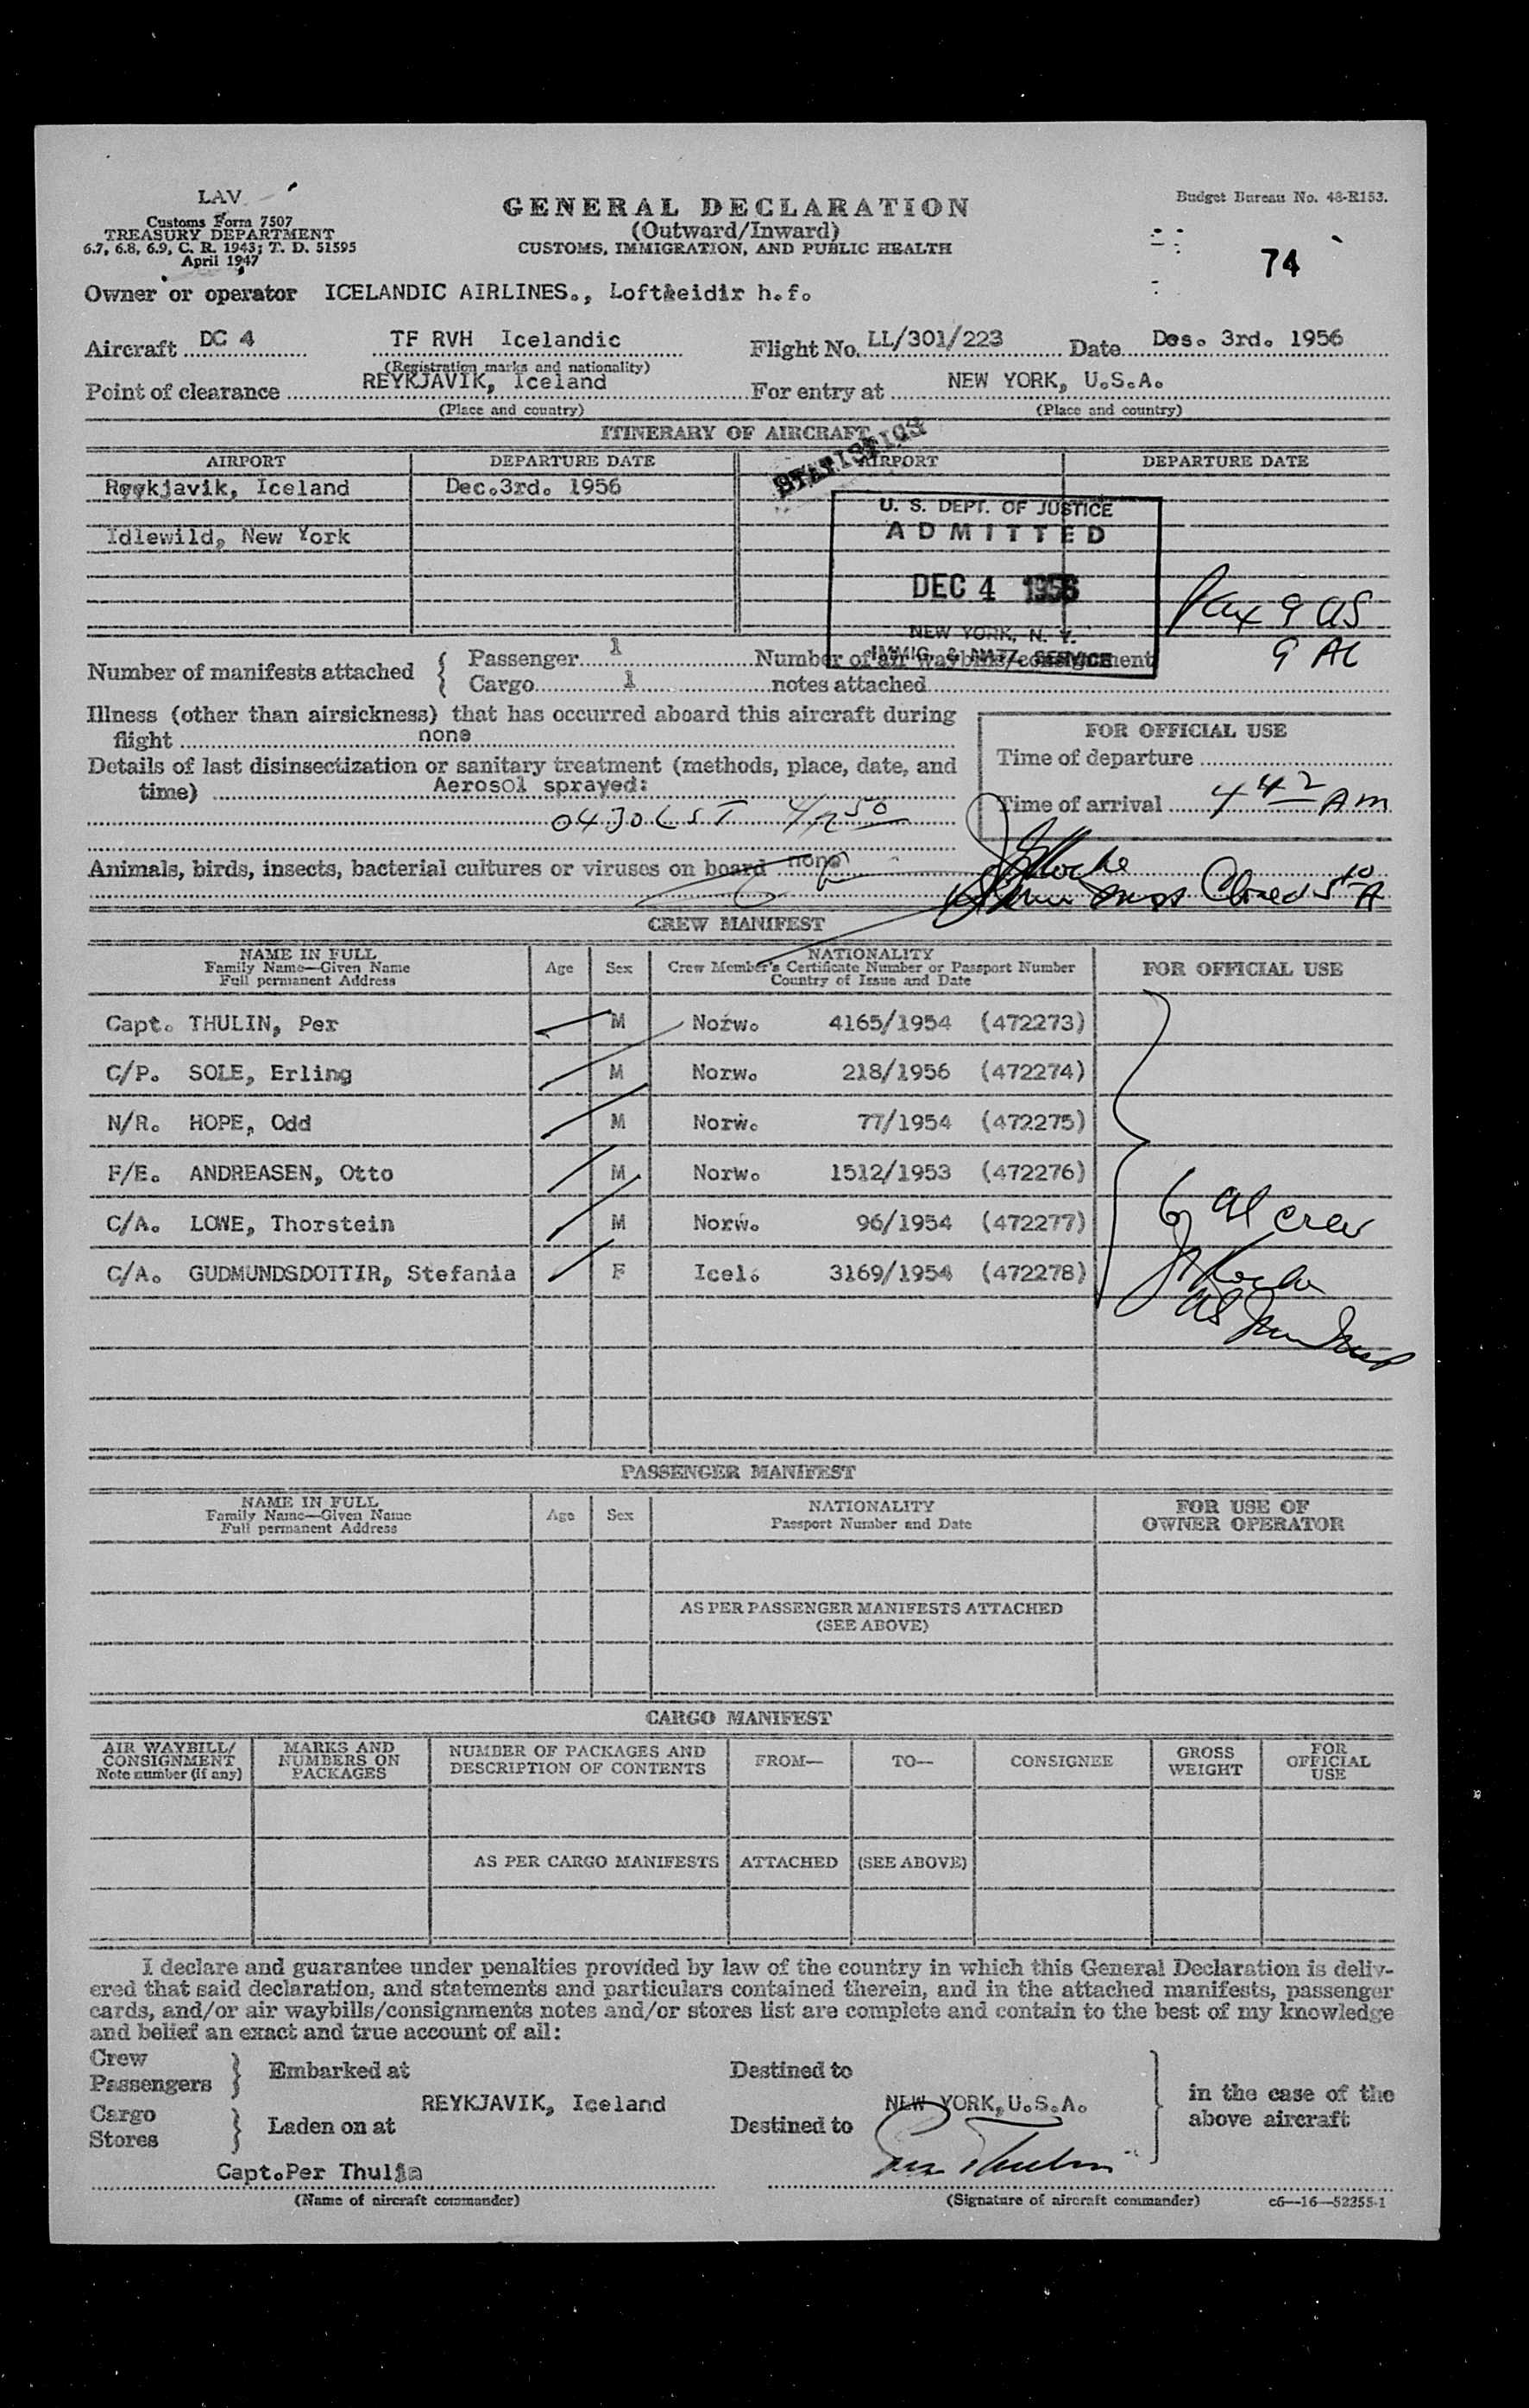 LAV
Customs Form 7507
TREASURY DEPARTMENT
6.7, 6.8, 6.9, C. R. 1943; T. D. 51595
April 1947
GENERAL DECLARATION
(Outward/Inward)
CUSTOMS, IMMIGRATION, AND PUBLIC HEALTH
Budget Bureau No. 48-R153.
74
Owner or operator ICELANDIC AIRLINES., Loftleidir h.f.
Aircraft DC 4 TF RVH Icelandic Flight No. LL/301/223 Date Des. 3rd. 1956
(Registration marks and nationality)
Point of clearance REYKJAVIK, Iceland For entry at NEW YORK, U.S.A.
(Place and country) (Place and country)
ITINERARY OF AIRCRAFT
STATISTICS
AIRPORT DEPARTURE DATE AIRPORT DEPARTURE DATE
Reykjavik, Iceland Dec.3rd. 1956
Idlewild, New York
U. S. DEPT. OF JUSTICE
ADMITTED
DEC 4 1956
NEW YORK, N. Y.
IMMIG. & NATZ. SERVICE
Pax 9 US
9 AL
Number of manifests attached Passenger 1 Number of air waybills/consignment
Cargo 1 notes attached
Illness (other than airsickness) that has occurred aboard this aircraft during
flight none
Details of last disinsectization or sanitary treatment (methods, place, date, and
time) Aerosol sprayed:
0430 LST
FOR OFFICIAL USE
Time of departure
Time of arrival 4 42 AM
Animals, birds, insects, bacterial cultures or viruses on board none
Closed 5 10 A
CREW MANIFEST
NAME IN FULL
Family Name—Given Name
Full permanent Address
Age Sex
NATIONALITY
Crew Member's Certificate Number or Passport Number
Country of Issue and Date
FOR OFFICIAL USE
Capt. THULIN, Per M Norw. 4165/1954 (472273)
C/P. SOLE, Erling M Norw. 218/1956 (472274)
N/R. HOPE, Odd M Norw. 77/1954 (472275)
F/E. ANDREASEN, Otto M Norw. 1512/1953 (472276)
C/A. LOWE, Thorstein M Norw. 96/1954 (472277)
C/A. GUDMUNDSDOTTIR, Stefania F Icel. 3169/1954 (472278)
6 al crew
PASSENGER MANIFEST
NAME IN FULL
Family Name—Given Name
Full permanent Address
Age Sex
NATIONALITY
Passport Number and Date
FOR USE OF
OWNER OPERATOR
AS PER PASSENGER MANIFESTS ATTACHED
(SEE ABOVE)
CARGO MANIFEST
AIR WAYBILL/
CONSIGNMENT
Note number (if any)
MARKS AND
NUMBERS ON
PACKAGES
NUMBER OF PACKAGES AND
DESCRIPTION OF CONTENTS
FROM—
TO—
CONSIGNEE
GROSS
WEIGHT
FOR
OFFICIAL
USE
AS PER CARGO MANIFESTS ATTACHED (SEE ABOVE)
I declare and guarantee under penalties provided by law of the country in which this General Declaration is deliv-
ered that said declaration, and statements and particulars contained therein, and in the attached manifests, passenger
cards, and/or air waybills/consignments notes and/or stores list are complete and contain to the best of my knowledge
and belief an exact and true account of all:
Crew
Passengers
Embarked at Destined to
REYKJAVIK, Iceland NEW YORK,U.S.A.
in the case of the
above aircraft
Cargo
Stores
Laden on at Destined to
Capt.Per Thulin Per Thulin
(Name of aircraft commander) (Signature of aircraft commander) c6—16—52255-1